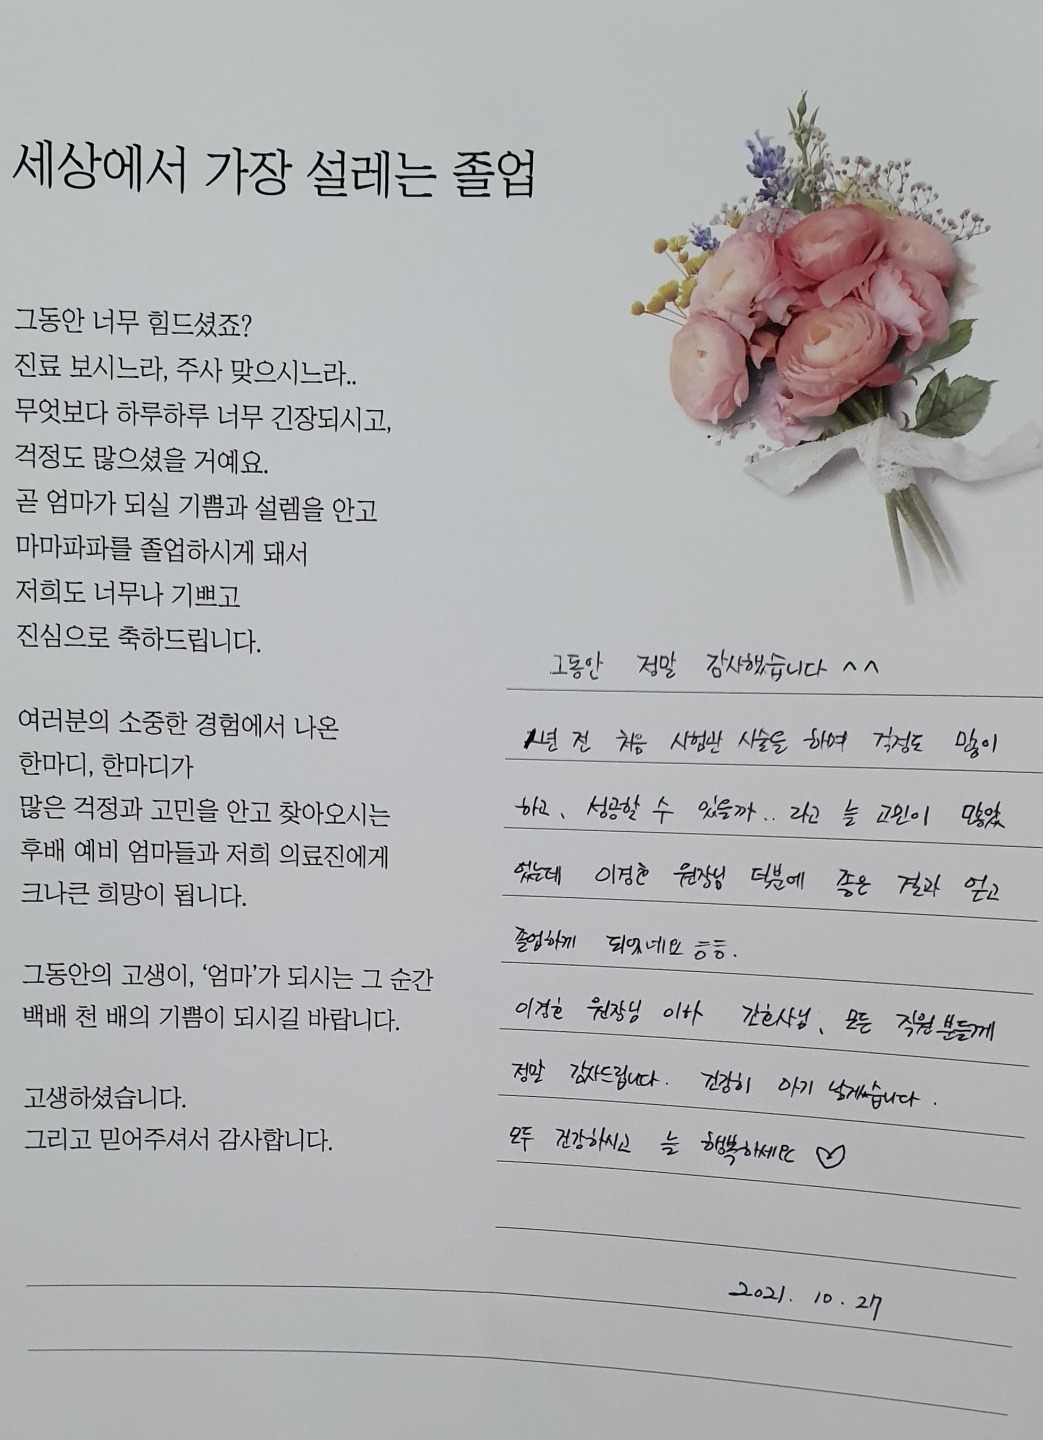 세상에서 가장 설레는 졸업
그동안 너무 힘드셨죠?
진료 보시느라, 주사 맞으시느라..
무엇보다 하루하루 너무 긴장되시고,
걱정도 많으셨을 거예요.
곧 엄마가 되실 기쁨과 설렘을 안고
마마파파를 졸업하시게 돼서
저희도 너무나 기쁘고
진심으로 축하드립니다.
여러분의 소중한 경험에서 나온
한마디, 한마디가
많은 걱정과 고민을 안고 찾아오시는
후배 예비 엄마들과 저희 의료진에게
크나큰 희망이 됩니다.
그동안의 고생이, '엄마'가 되시는 그 순간
백배 천 배의 기쁨이 되시길 바랍니다.
고생하셨습니다.
그리고 믿어주셔서 감사합니다.
그동안 정말 감사했습니다 ^^
1년 전 처음 시험관 시술을 하며 걱정도 많이
하고, 성공할 수 있을까.. 라고 늘 고민이 많았
었는데 이경호 원장님 덕분에 좋은 결과 얻고
졸업하게 되었네요 ㅎㅎ.
이경호 원장님 이하 간호사님, 모든 직원분들께
정말 감사드립니다. 건강히 아기 낳겠습니다.
모두 건강하시고 늘 행복하세요 ♡
2021. 10. 27